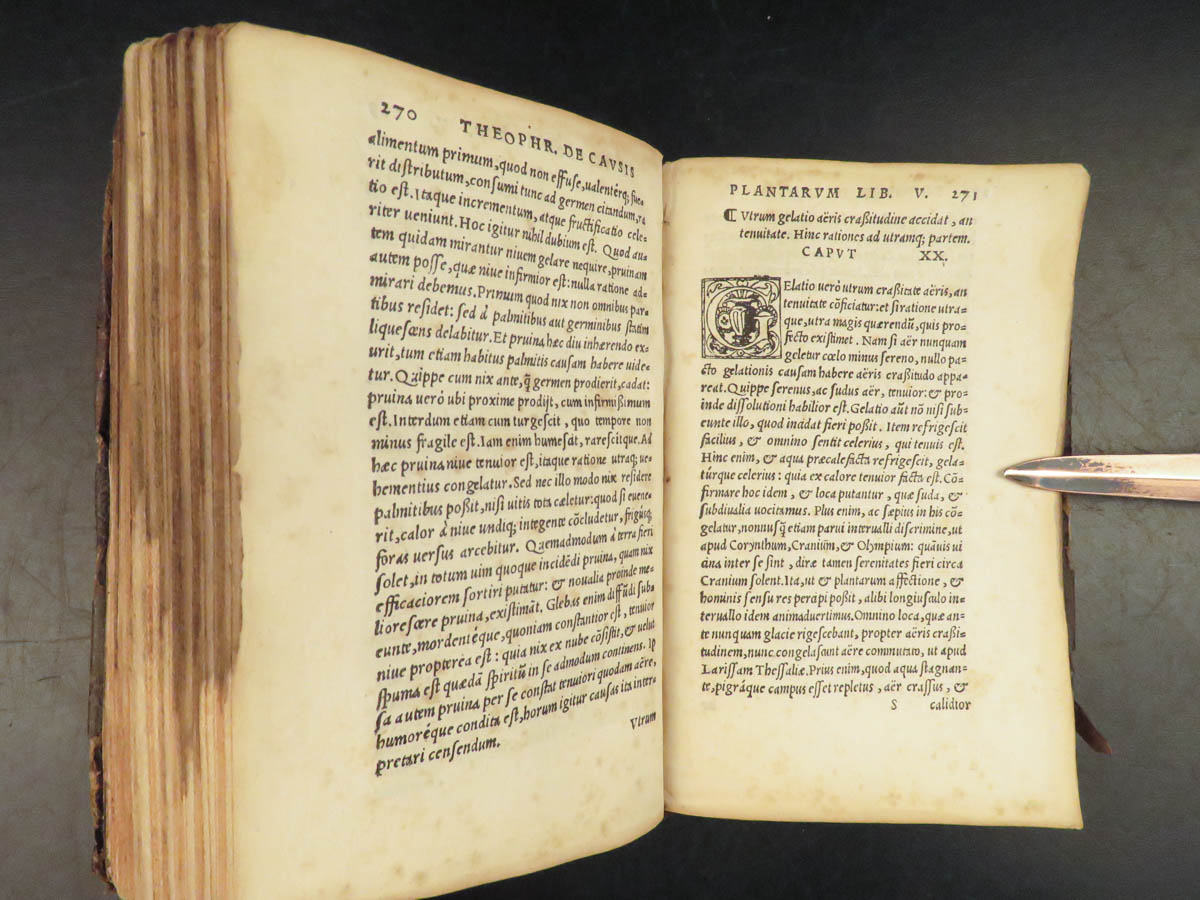 270
THEOPHR. DE CAVSIS
alimentum primum, quod non effuse, ualenterq́; fue-
rit distributum, consumi tunc ad germen citandum, ra
tio est. Itaque incrementum, atque fructificatio cele-
riter ueniunt. Hoc igitur nihil dubium est. Quod au-
tem quidam mirantur niuem gelare nequire, pruinam
autem posse, quæ niue infirmior est: nulla ratione ad-
mirari debemus. Primum quod nix non omnibus par-
tibus residet: sed à palmitibus aut germinibus statim
liquescens delabitur. Et pruina, hæc diu inhærendo ex-
urit, tum etiam habitus palmitis causam habere uide-
tur. Quippe cum nix ante, q̃ germen prodierit, cadat:
pruina uerò ubi proxime prodijt, cum infirmißimum
est. Interdum etiam cum turgescit, quo tempore non
minus fragile est. Iam enim humescit, rarescitque. Ad
hæc pruina niue tenuior est, itaque ratione utraq; ue-
hementius congelatur. Sed nec illo modo nix residere
palmitibus poßit, nisi uitis tota cæletur: quod si euene-
rit, calor à niue undiq; integente cõcludetur, frigusq́;
foras uersus arcebitur. Quemadmodum à terra fieri
solet, in totum uim quoque incidẽdi pruina, quam nix
efficaciorem sortiri putatur: & noualia proinde me-
liorescere pruina, existimãt. Glebas enim diffũdi sub-
eunte, mordenteque, quoniam constantior est, tenuior
niue propterea est: quia nix ex nube cõsistit, & uelut
spuma est quædã spiritũ in se admodum continens. Ip
sa autem pruina per se constat tenuiori quodam aëre,
humoréque condita est, horum igitur causas ita inter-
pretari censendum.
Vtrum
PLANTARVM LIB. V. 271
¶ Vtrum gelatio aëris craßitudine accidat, an
tenuitate. Hinc rationes ad utramq; partem.
CAPVT XX.
GElatio uerò utrum craßitate aëris, an
tenuitate cõficiatur: et si ratione utra-
que, utra magis quærendũ, quis pro-
fecto existimet. Nam si aër nunquam
geletur cœlo minus sereno, nullo pa-
cto gelationis causam habere aëris craßitudo appa-
reat. Quippe serenus, ac sudus aër, tenuior: & pro-
inde dissolutioni habilior est. Gelatio aũt nõ nisi sub-
eunte illo, quod incidat fieri poßit. Item refrigescit
facilius, & omnino sentit celerius, qui tenuis est.
Hinc enim, & aqua præcalefacta refrigescit, gela-
túrque celerius: quia ex calore tenuior facta est. Cõ-
firmare hoc idem, & loca putantur, quæ suda, &
subdiualia uocitamus. Plus enim, ac sæpius in his cõ-
gelatur, nonnusq̃ etiam parui interualli discrimine, ut
apud Corynthum, Craniũm, & Olympium: quãuis ui
cina inter se sint, diræ tamen serenitates fieri circa
Cranium solent. Ita, ut & plantarum affectione, &
hominis sensu res percipi poßit, alibi longiusculo in-
teruallo idem animaduertimus. Omnino loca, quæ an-
te nunquam glacie rigescebant, propter aëris craßi-
tudinem, nunc congelascunt aëre commutato, ut apud
Larissam Thessaliæ. Prius enim, quod aqua stagnan-
te, pigráque campus esset repletus, aër crassus, &
S calidior